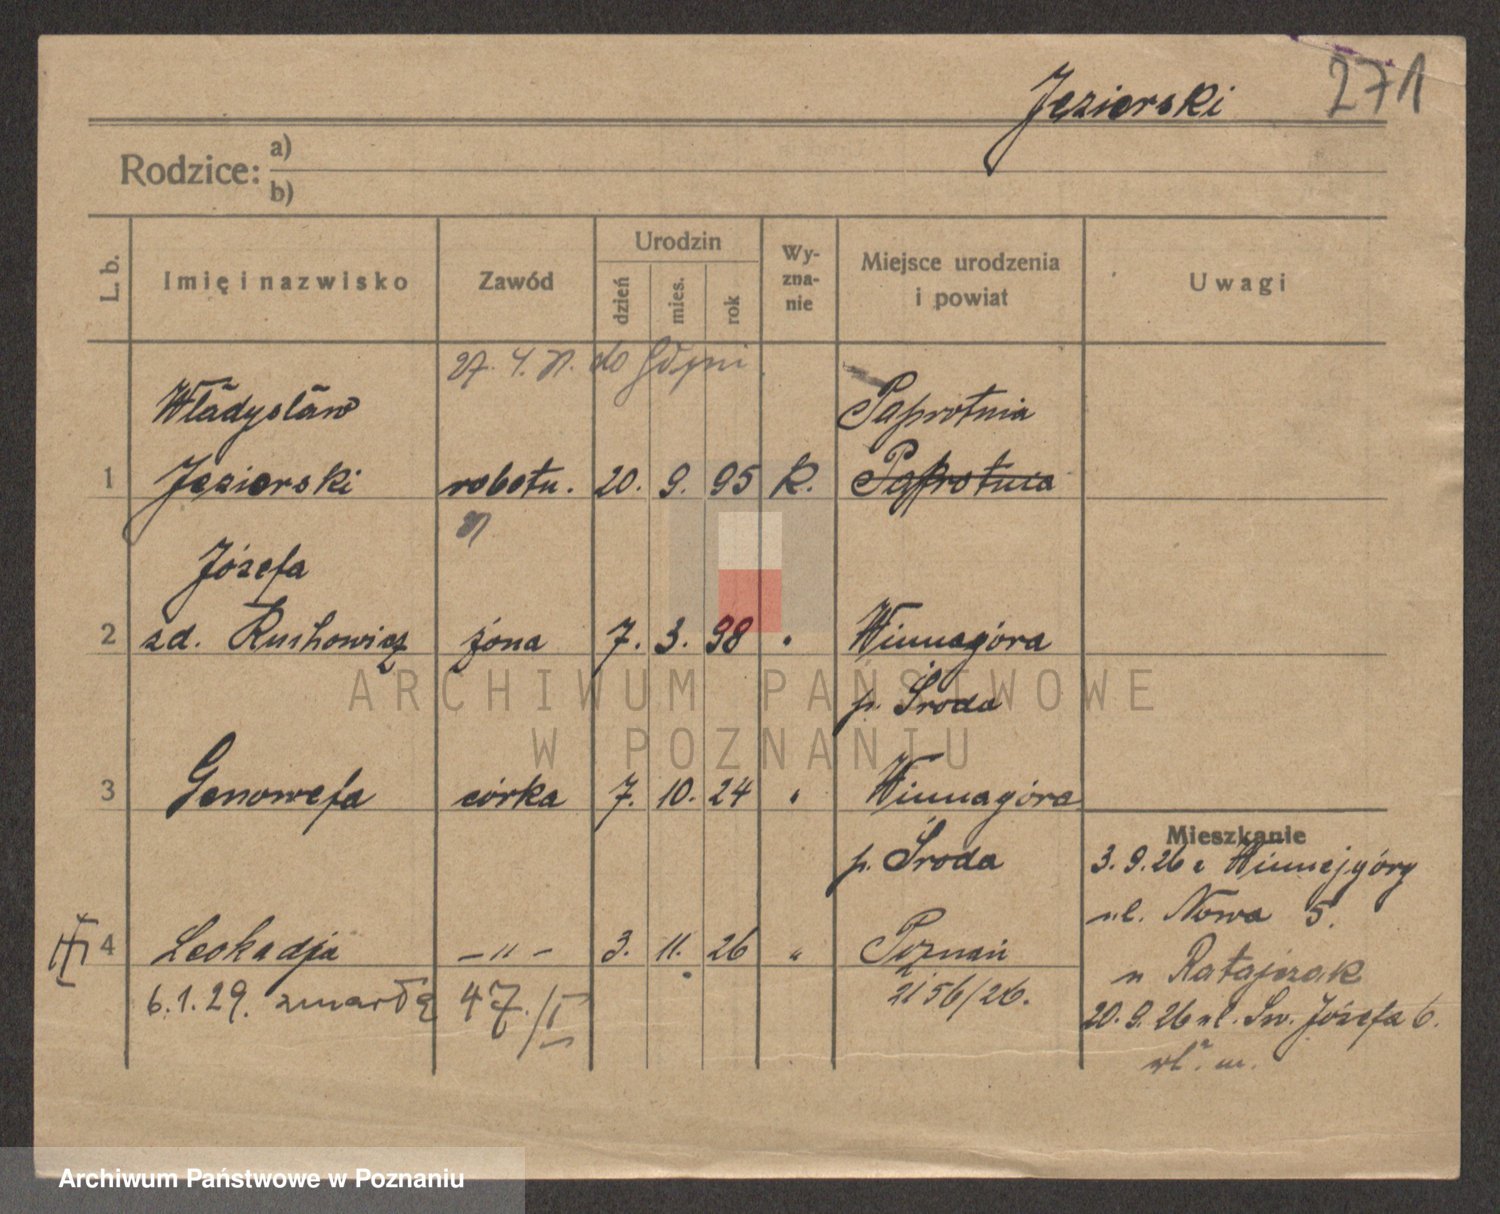 Jęzierski 271
Rodzice: a)
b)
L. b. Imię i nazwisko Zawód Urodzin dzień mies. rok Wy-zna-nie Miejsce urodzenia i powiat Uwagi
27. 4. 31. do Gdyni
Władysław Paprotnia
1 Jęzierski robotn. 20. 9. 95 K. Paprotnia
31
Józefa
2 zd. Ruchowicz żona 7. 3. 98 " Winnagóra
p. Środa
3 Genowefa córka 7. 10. 24 " Winnagóra
Mieszkanie
p. Środa 3. 9. 26 z Winnejgóry
ul. Nowa 5.
4 Leokadja — " — 3. 11. 26 " Poznań
u Ratajczak
6. 1. 29. zmarła 47/I 2156/26.
20. 9. 26 ul. Św. Józefa 6.
wł. m.
ARCHIWUM PAŃSTWOWE
W POZNANIU
Archiwum Państwowe w Poznaniu